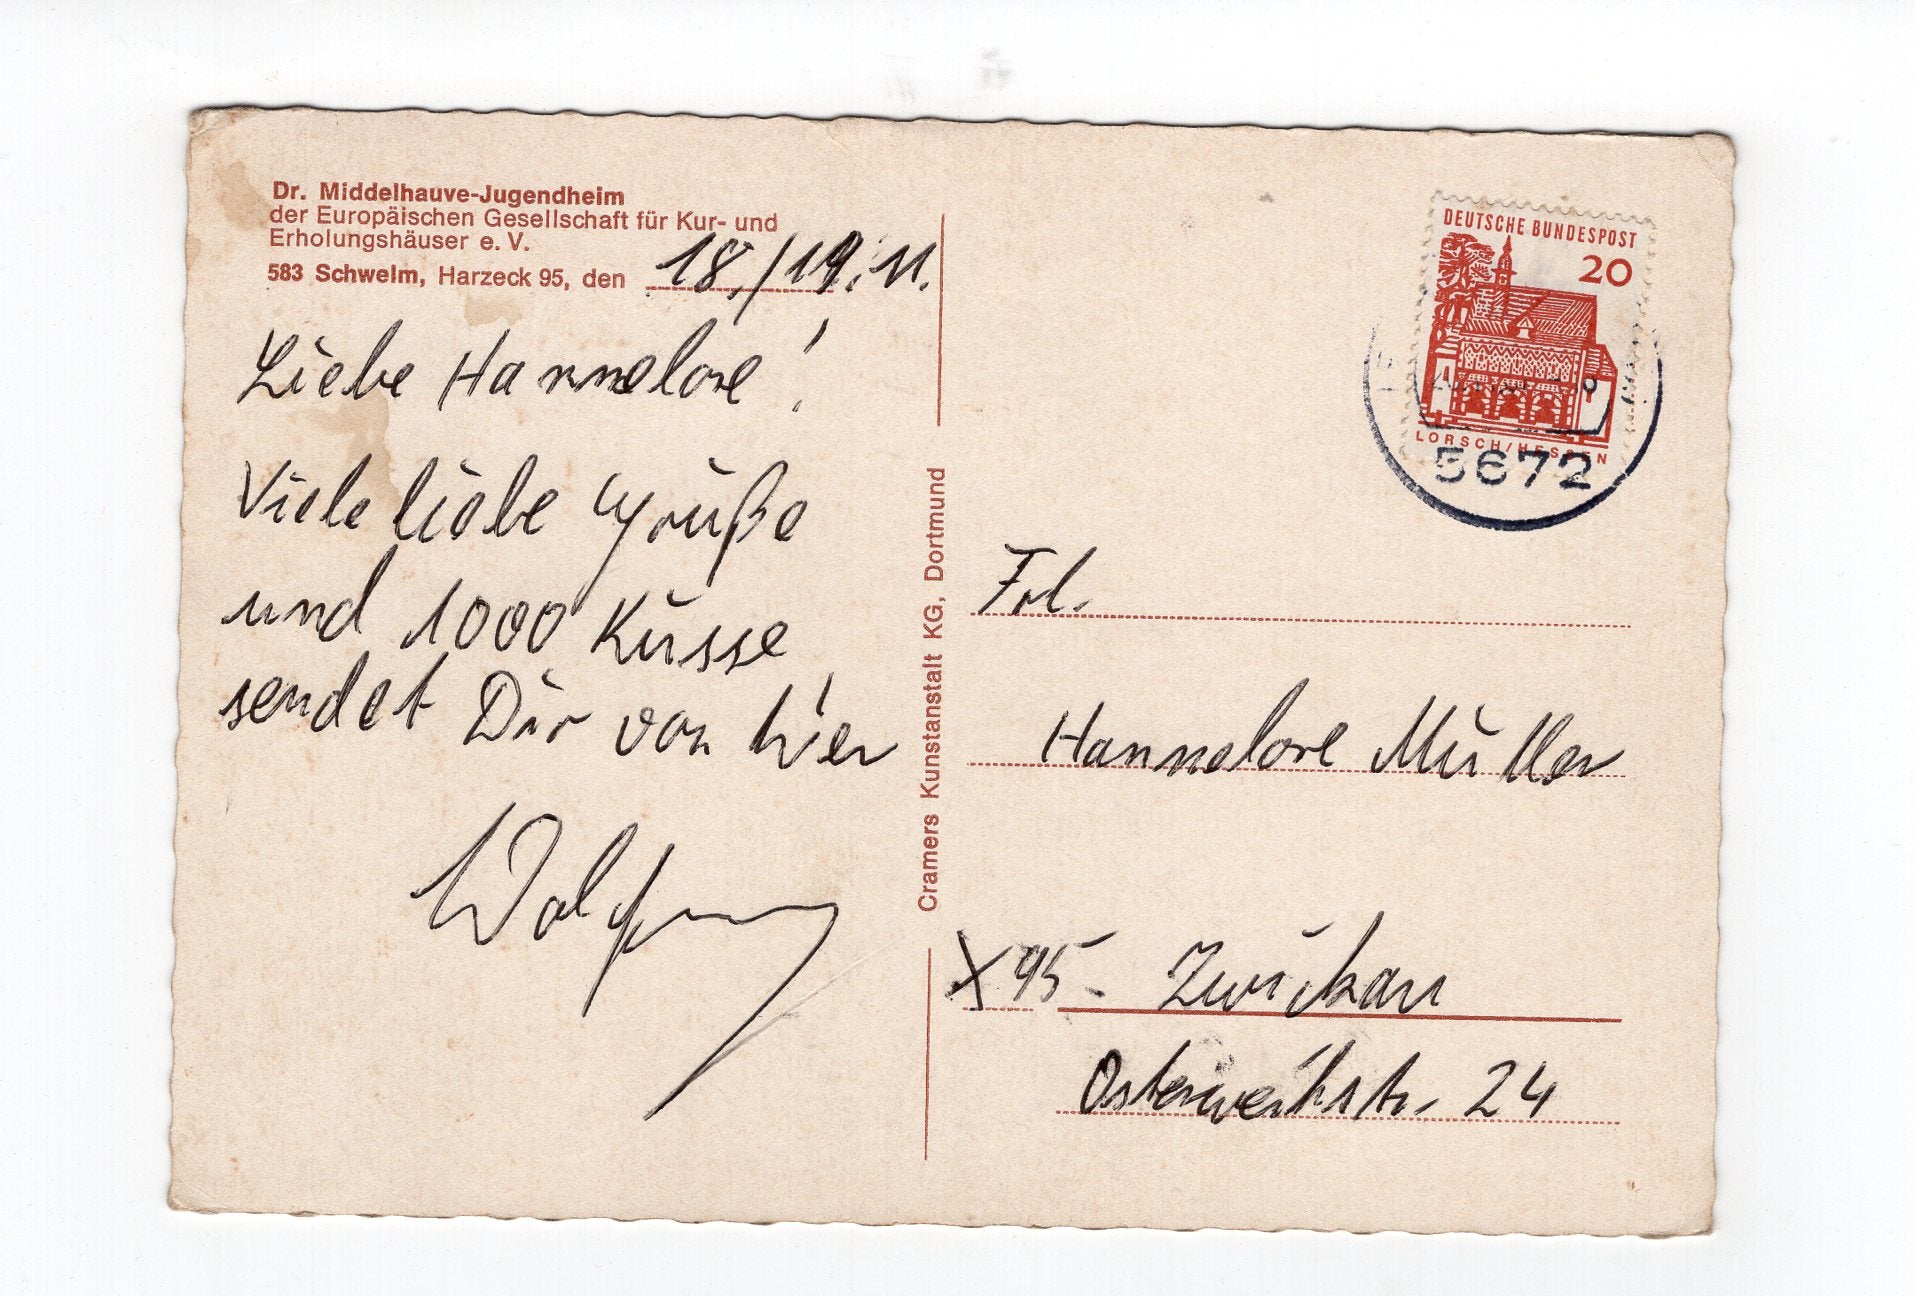 Dr. Middelhauve-Jugendheim
der Europäischen Gesellschaft für Kur- und
Erholungshäuser e. V.
583 Schwelm, Harzeck 95, den 18./19.11.
Liebe Hannelore!
Viele liebe Grüße
und 1000 Küsse
sendet Dir von hier
Wolfgang
Cramers Kunstanstalt KG, Dortmund
DEUTSCHE BUNDESPOST
20
LORSCH/HESSEN
5672
Frl.
Hannelore Müller
X 95 - Zwickau
Osterweihstr. 24